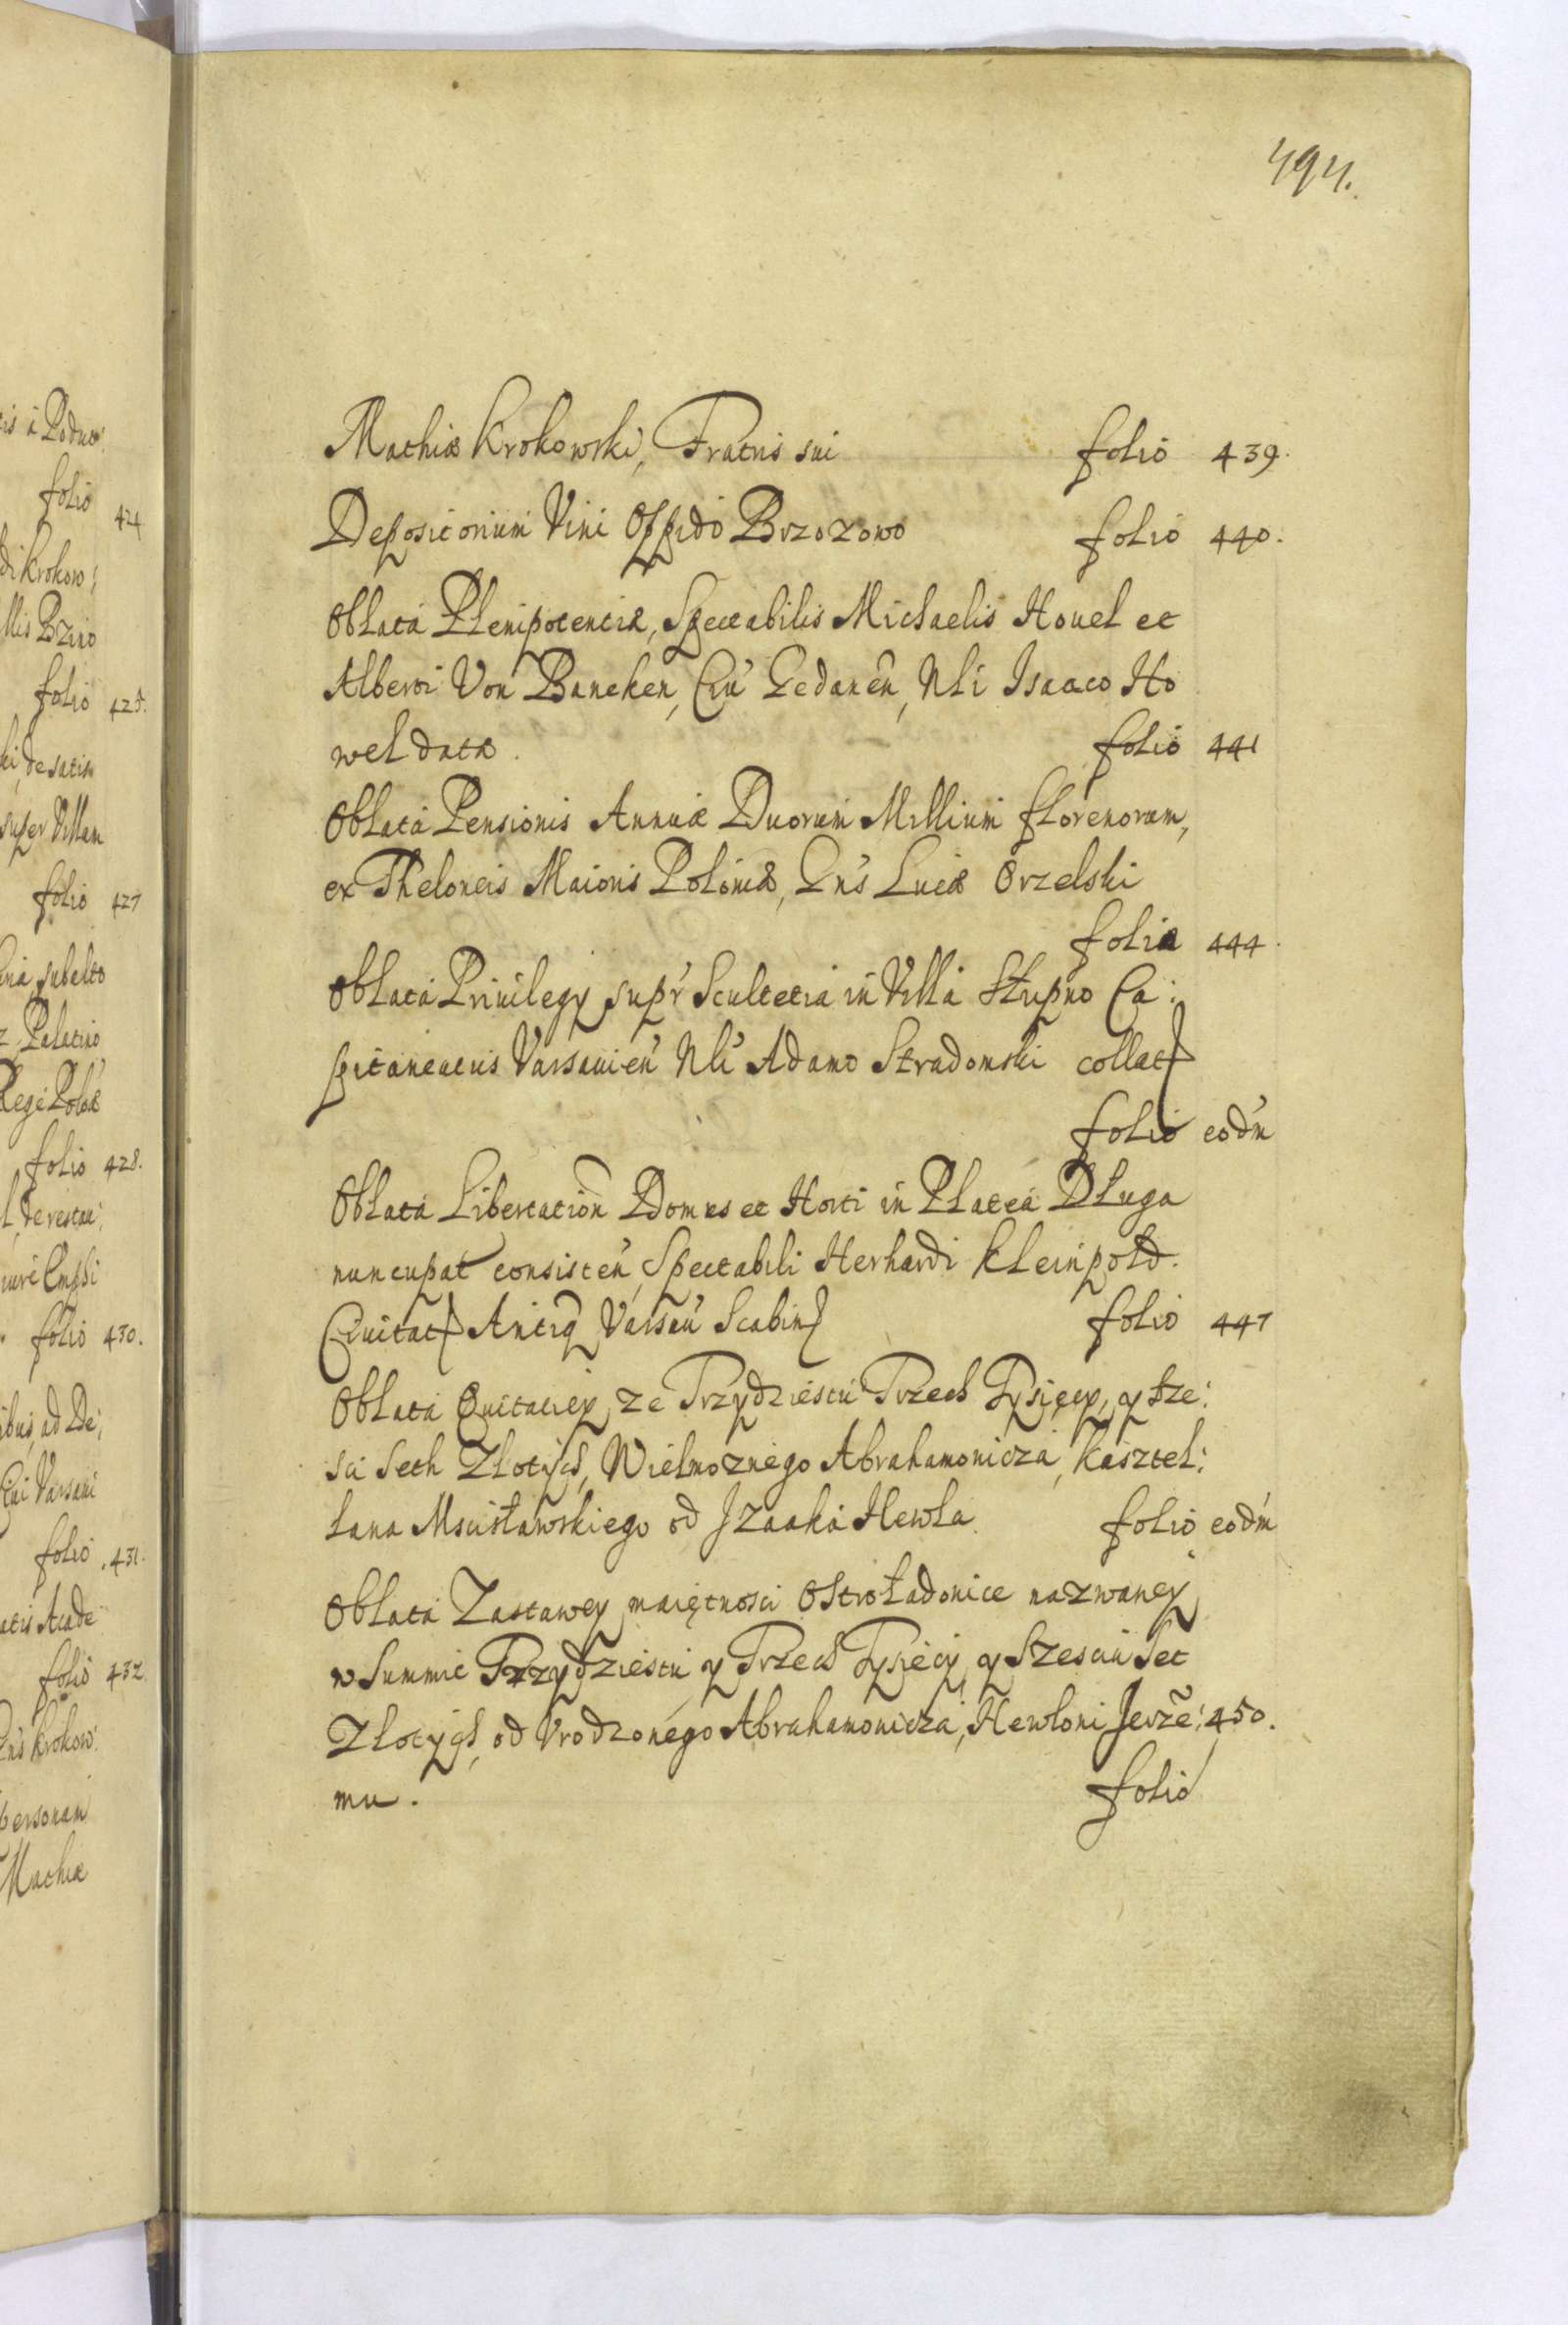 494.
Mathiæ Krokowski, Fratris sui folio 439.
Depositorium Vini Oppido Brzozowo folio 440.
Oblata Plenipotentiæ, Spectabilis Michaelis Hovel et
Alberti Von Baneken, Ciu' Gedanen̄, Nli Isaaco Ho
wel datæ. folio 441
Oblata Pensionis Annuæ Duorum Millium florenorum,
ex Theloneis Maioris Poloniæ, Gn's Lucæ Orzelski
folio 444.
Oblata Priuilegy, supr' Scultetia in Villa Słupno Ca:
pitaneatus Varsauien' Nli' Adamo Stradomski collat
folio eod'm
Oblata Libertation̄ Domus et Horti in Platea Długa
nuncupat consisten', Spectabili Herhardi Kleinpold.
Ciuitat Antiq Varsau' Scabin folio 447
Oblata Quitaciey ze Trzydziestu Trzech Tysięcy, y sze:
sci seth Złotych, Wielmoznego Abrahamonicza, Kasztel:
lana Mscisławskiego od Jzaaka Hewla folio eod'm
Oblata Zastawey maiętnosci Ostroładonice nazwaney
w Summie Trzydziestu y Trzech Tysięcy y Szesciu Set
Złotych, od Vrodzonego Abrahamonicza, Hewloni Jerze: 450.
mu. folio
folio 424
folio 425.
super Villam
folio 427
Palatino
folio 428.
folio 430.
folio 431.
folio 432
personam
Mathiæ